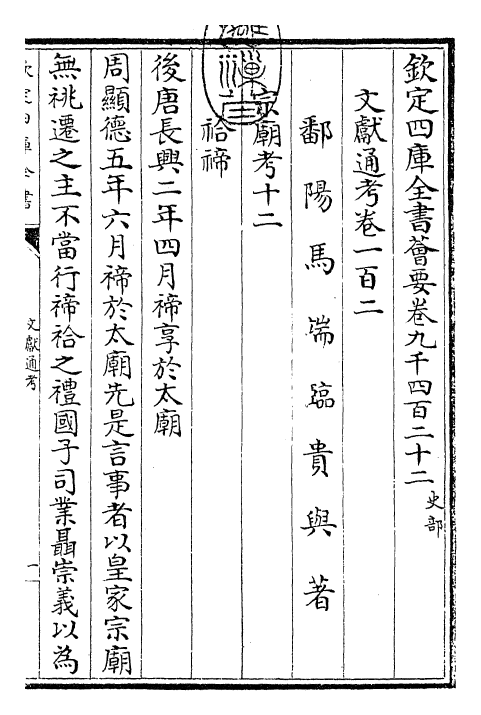 欽定四庫全書薈要卷九千四百二十二 史部
文獻通考卷一百二
鄱陽馬端臨貴與著
宗廟考十二
祫禘
後唐長興二年四月禘享於太廟
周顯德五年六月禘於太廟先是言事者以皇家宗廟
無祧遷之主不當行禘祫之禮國子司業聶崇義以為
欽定四庫全書
文獻通考
一